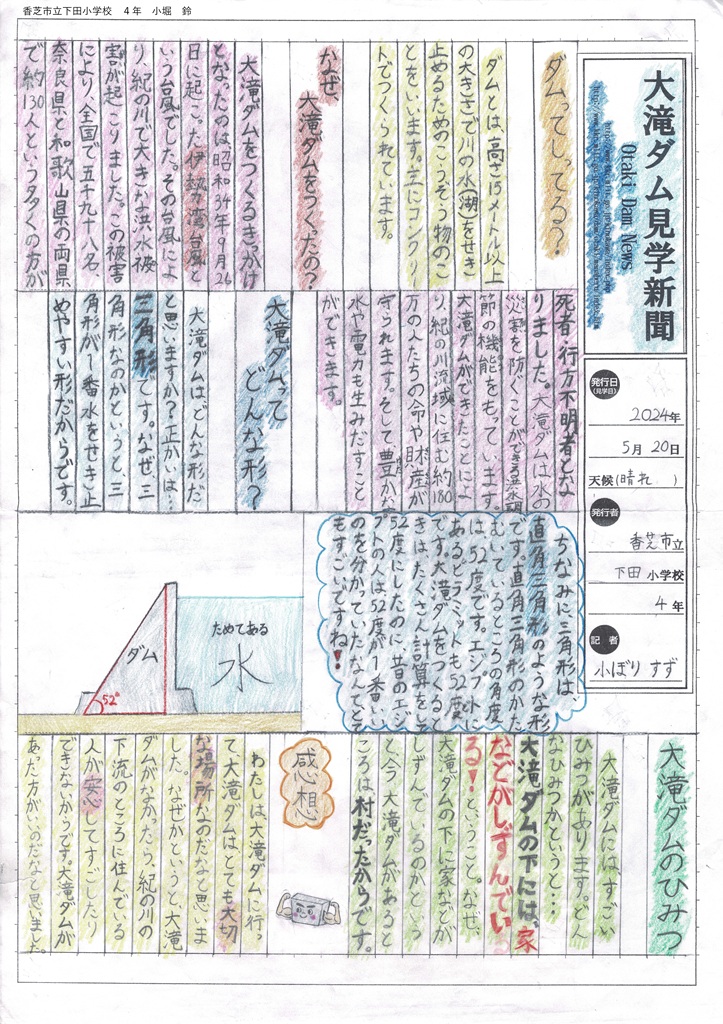 香芝市立下田小学校　４年　小堀　鈴
大滝ダム見学新聞
Otaki Dam News
発行日
(見学日)
2024年
5月20日
天候(晴れ)
発行者
香芝市立
下田小学校
4年
記者
小ぼり すず
ダムってしってる?
ダムとは、高さ15メートル以上
の大きさで川の水(湖)をせき
止めるためのこうぞう物のこ
とをいいます。主にコンクリー
トでつくられています。
なぜ
大滝ダムをつくったの?
大滝ダムをつくるきっかけ
となったのは、昭和34年9月26
日に起こった伊勢湾台風と
いう台風でした。その台風によ
り、紀の川で大きな洪水被
害が起こりました。この被害
により、全国で五千九十八名、
奈良県と和歌山県の両県
で約130人という多くの方が
死者・行方不明者とな
りました。大滝ダムは水の
災害を防ぐことができる洪水調
節の機能をもっています。
大滝ダムができたことによ
り、紀の川流域に住む約180
万の人たちの命や財産が
守られます。そして、豊かな
水や電力も生みだすこと
ができます。
大滝ダムって
どんな形?
大滝ダムはどんな形だ
と思いますか?正かいは…
三角形です。なぜ三
角形なのかというと、三
角形が1番水をせき止
めやすい形だからです。
ちなみに三角形は、
直角三角形のような形
です。直角三角形のかた
むいているところの角度
は、52度です。エジプトに
あるピラミットも52度
です。大滝ダムをつくると
きは、たくさん計算をして
52度にしたのに、昔のエジ
プトの人は52度が1番いい
のを分かっていたなんてとて
もすごいですね!
ダム
52°
ためてある
水
大滝ダムのひみつ
大滝ダムには、すごい
ひみつがあります。どん
なひみつかというと…
大滝ダムの下には、家
などがしずんでい
る!ということ。なぜ、
大滝ダムの下に家などが
しずんでいるのかという
と今、大滝ダムがあると
ころは村だったからです。
感想
わたしは、大滝ダムに行っ
て大滝ダムはとても大切
な場所なのだなと思いま
した。なぜかというと、大滝
ダムがなかったら、紀の川の
下流のところに住んでいる
人が安心してすごしたり
できないからです。大滝ダムが
あった方がいいのだなと思いました。